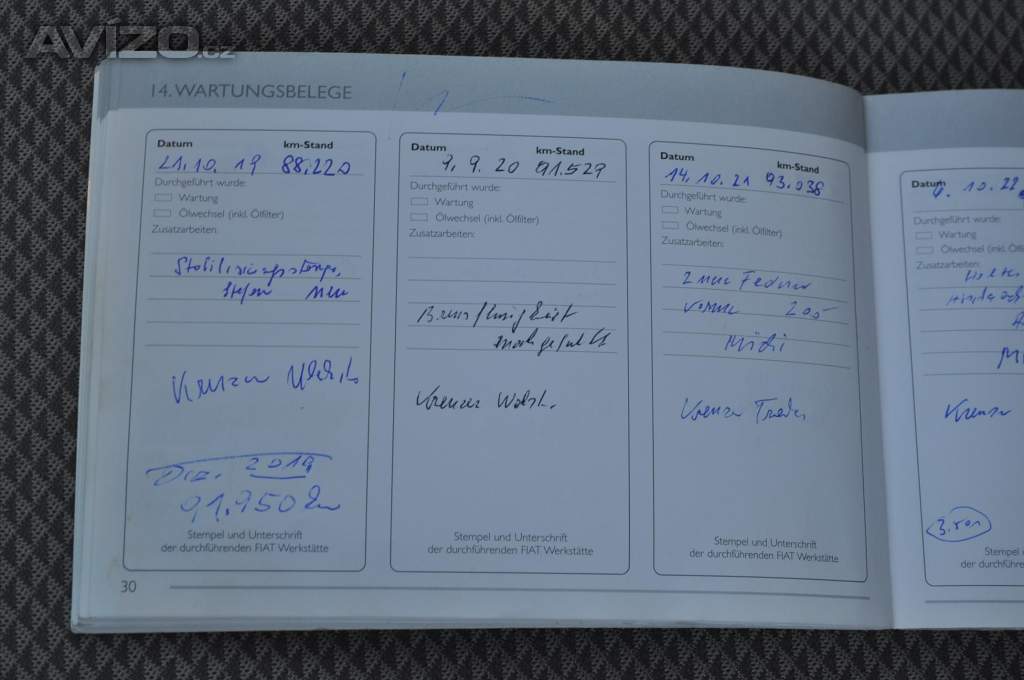 AVÍZO.cz
14. WARTUNGSBELEGE
Datum km-Stand
21.10.19 88.220
Durchgeführt wurde:
Wartung
Ölwechsel (inkl. Ölfilter)
Zusatzarbeiten:
neu
Dez. 2019
91.950 km
Stempel und Unterschrift
der durchführenden FIAT Werkstätte
30
Datum km-Stand
9.20 91.529
Durchgeführt wurde:
Wartung
Ölwechsel (inkl. Ölfilter)
Zusatzarbeiten:
Bremsflüssigkeit
nachgefüllt
Stempel und Unterschrift
der durchführenden FIAT Werkstätte
Datum km-Stand
14.10.21 93.038
Durchgeführt wurde:
Wartung
Ölwechsel (inkl. Ölfilter)
Zusatzarbeiten:
2 neue Federn
vorne 200
Stempel und Unterschrift
der durchführenden FIAT Werkstätte
Datum
10.22
Durchgeführt wurde:
Wartung
Ölwechsel (inkl. Ölfi
Zusatzarbeiten:
Stempel
der durchführ